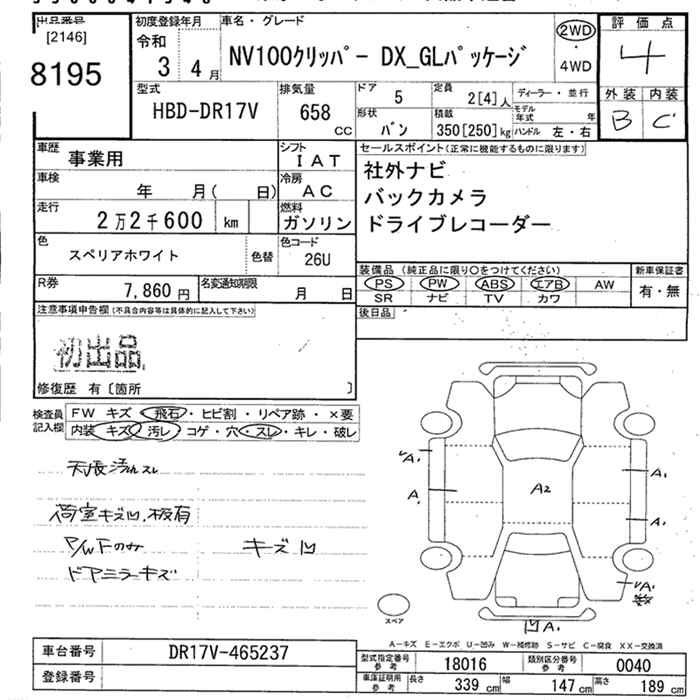 出品番号
[2146]
8195
初度登録年月
令和
3 4月
車名・グレード
NV100クリッパー DX_GLパッケージ
2WD
・
4WD
評価点
4
外装 内装
B C
型式
HBD-DR17V
排気量
658
CC
ドア
5
定員
2[4]人
ディーラー・並行
形状
バン
積載
350[250]kg
モデル年式 年
ハンドル 左・右
車歴
事業用
シフト
IAT
セールスポイント(正常に機能するものに限ります)
社外ナビ
バックカメラ
ドライブレコーダー
車検
年 月( 日)
冷房
AC
走行
2万2千600 km
燃料
ガソリン
色
スペリアホワイト
色替
色コード
26U
装備品 (純正品に限り○をつけてください)
PS PW ABS エアB AW
SR ナビ TV カワ
新車保証書
有・無
R券
7,860円
名変通知期限
月 日
後日品
注意事項申告欄(不具合内容等は具体的に記入して下さい)
初出品
修復歴 有〔箇所 〕
検査員
記入欄
FW キズ・飛石・ヒビ割・リペア跡・×要
内装 キズ・汚レ・コゲ・穴・スレ・キレ・破レ
天張汚れスレ
荷室キズ凹、板有
P/WFのみ キズ凹
ドアミラーキズ
A1
A1
A2
A1
A1
A1
凹A1
スペア
A-キズ E-エクボ U-凹み W-補修跡 S-サビ C-腐食 XX-交換済
車台番号
DR17V-465237
登録番号
型式指定番号
参考
18016
類別区分番号
参考
0040
車庫証明用
参考
長さ 339 cm
幅 147 cm
高さ 189 cm